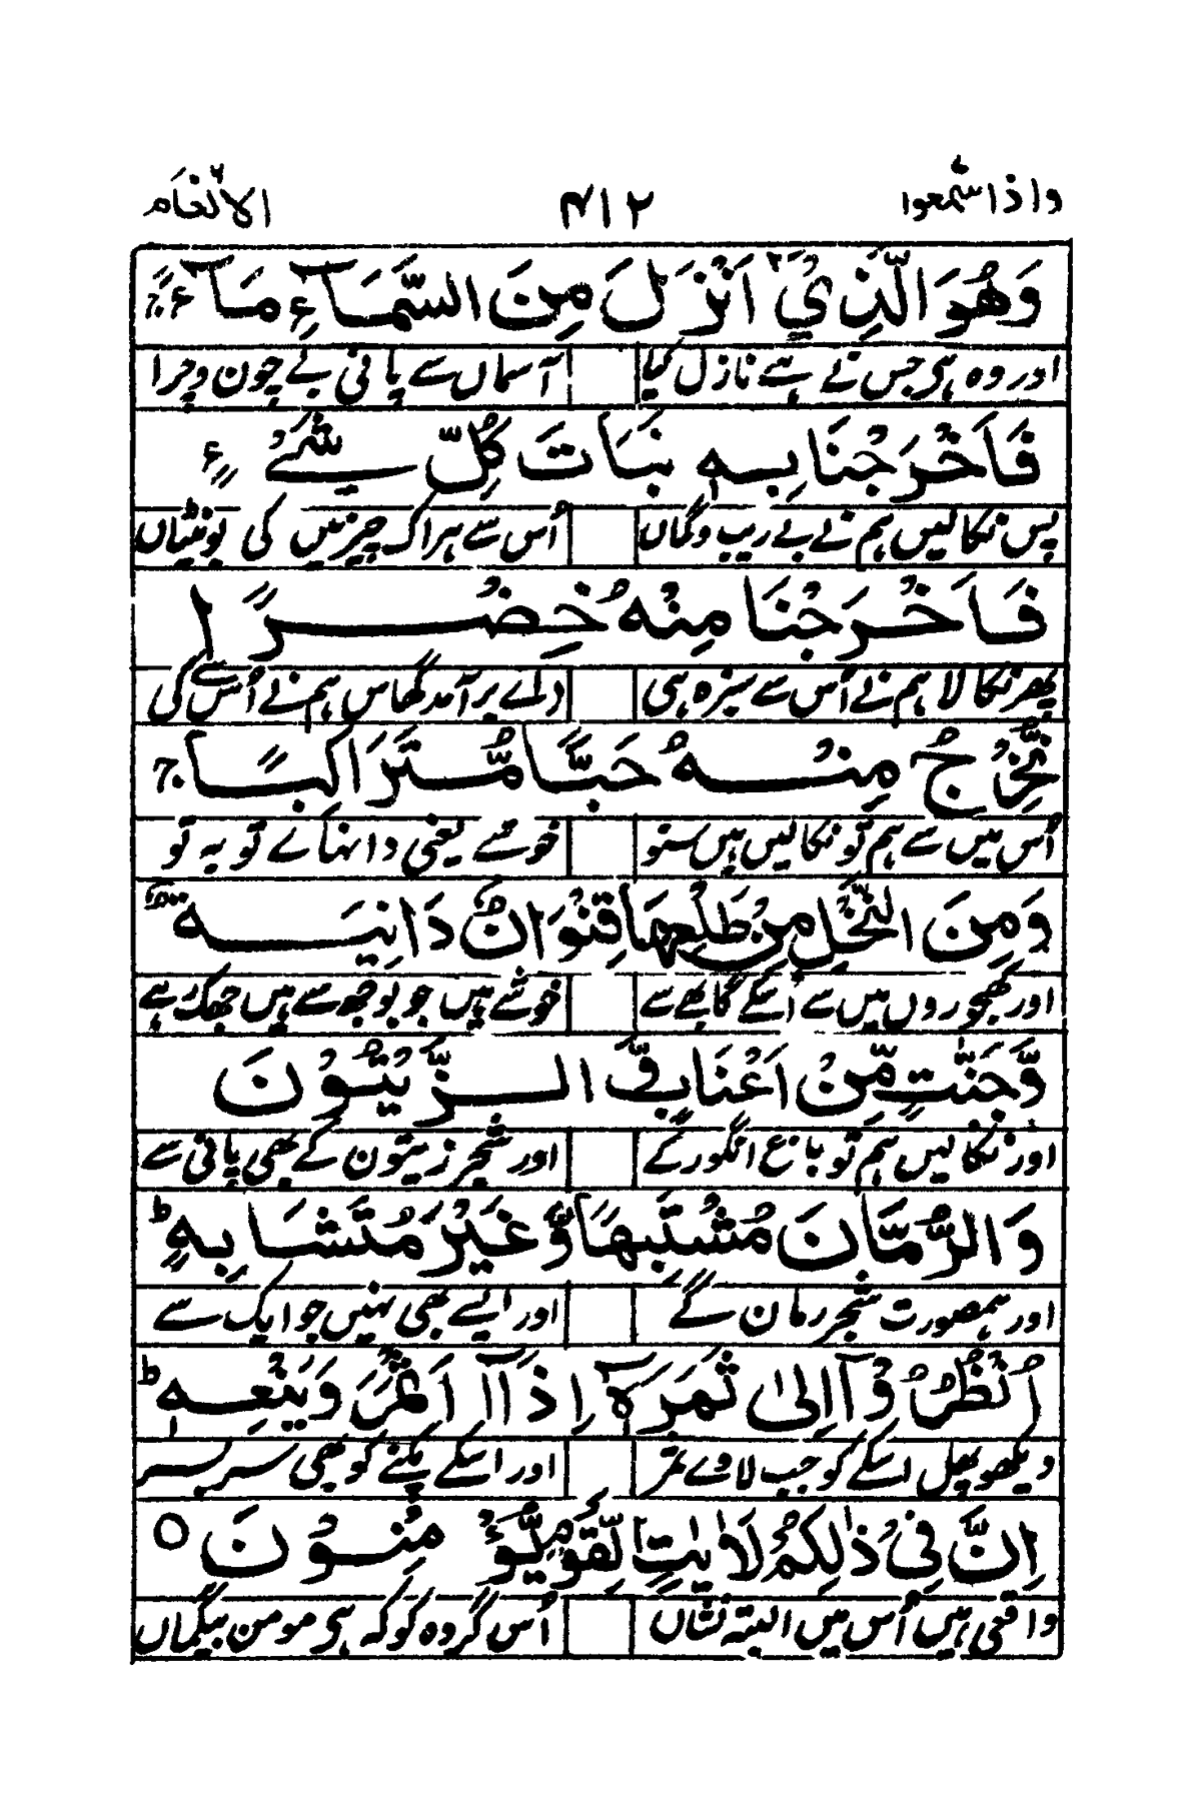 واذا سمعوا ۷ ۴۱۲ الانعام ۶
وَهُوَ الَّذِيۡۤ اَنۡزَلَ مِنَ السَّمَآءِ مَآءًج
اور وہ ہی جس نے ہے نازل کیا آسماں سے پانی بے چون و چرا
فَاَخۡرَجۡنَا بِهٖ نَبَاتَ كُلِّ شَيۡءٍ
پس نکالیں ہم نے بے ریب و گماں اُس سے ہر اک چیز میں کی بوٹیاں
فَاَخۡرَجۡنَا مِنۡهُ خَضِرًا
پھر نکالا ہم نے اُس سے سبزہ ہی دلے بر آمد گھاس ہم نے اُس سے کی
نُّخۡرِجُ مِنۡهُ حَبًّا مُّتَرَاكِبًاج
اُس میں سے ہم تو نکالیں ہیں سنو خوشے یعنی دانہاے تو بہ تو
وَمِنَ النَّخۡلِ مِنۡ طَلۡعِهَا قِنۡوَانٌ دَانِيَةٌ
اور کھجوروں میں سے اُسکے گابھے سے خوشے ہیں جو بوجھ سے ہیں جھک رہے
وَّجَنّٰتٍ مِّنۡ اَعۡنَابٍ وَّالزَّيۡتُوۡنَ
اور نکالیں ہم تو باغ انگور کے اور شجر زیتون کے بھی پانی سے
وَالرُّمَّانَ مُشۡتَبِهًا وَّغَيۡرَ مُتَشَابِهٍط
اور ہمصورت شجر رمان کے اور ایسے بھی نہیں جو ایک سے
اُنۡظُرُوۡۤا اِلٰى ثَمَرِهٖۤ اِذَاۤ اَثۡمَرَ وَيَنۡعِهٖط
دیکھو پھل اسکے کو جب لاوے ثمر اور اسکے پکنے کو بھی سر بسر
اِنَّ فِيۡ ذٰلِكُمۡ لَاٰيٰتٍ لِّقَوۡمٍ يُّؤۡمِنُوۡنَ ○
واقعی ہیں اُس میں البتہ نشاں اُس گروہ کو کہ ہی مومن بیگماں